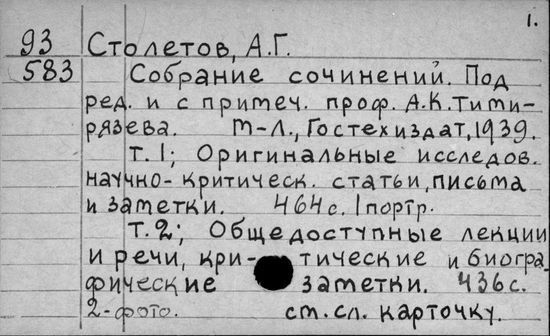 1.
93 Столетов, А.Г.
583 Собрание сочинений. Под
ред. и с примеч. проф. А.К. Тими-
рязева. М-Л., Гостехиздат, 1939.
Т. 1; Оригинальные исследов.
научно-критическ. статьи, письма
и заметки. 464 с. 1 портр.
Т. 2; Общедоступные лекции
и речи, кри- тические и биогра-
фические заметки. 436 с.
2-фото. см. сл. карточку.